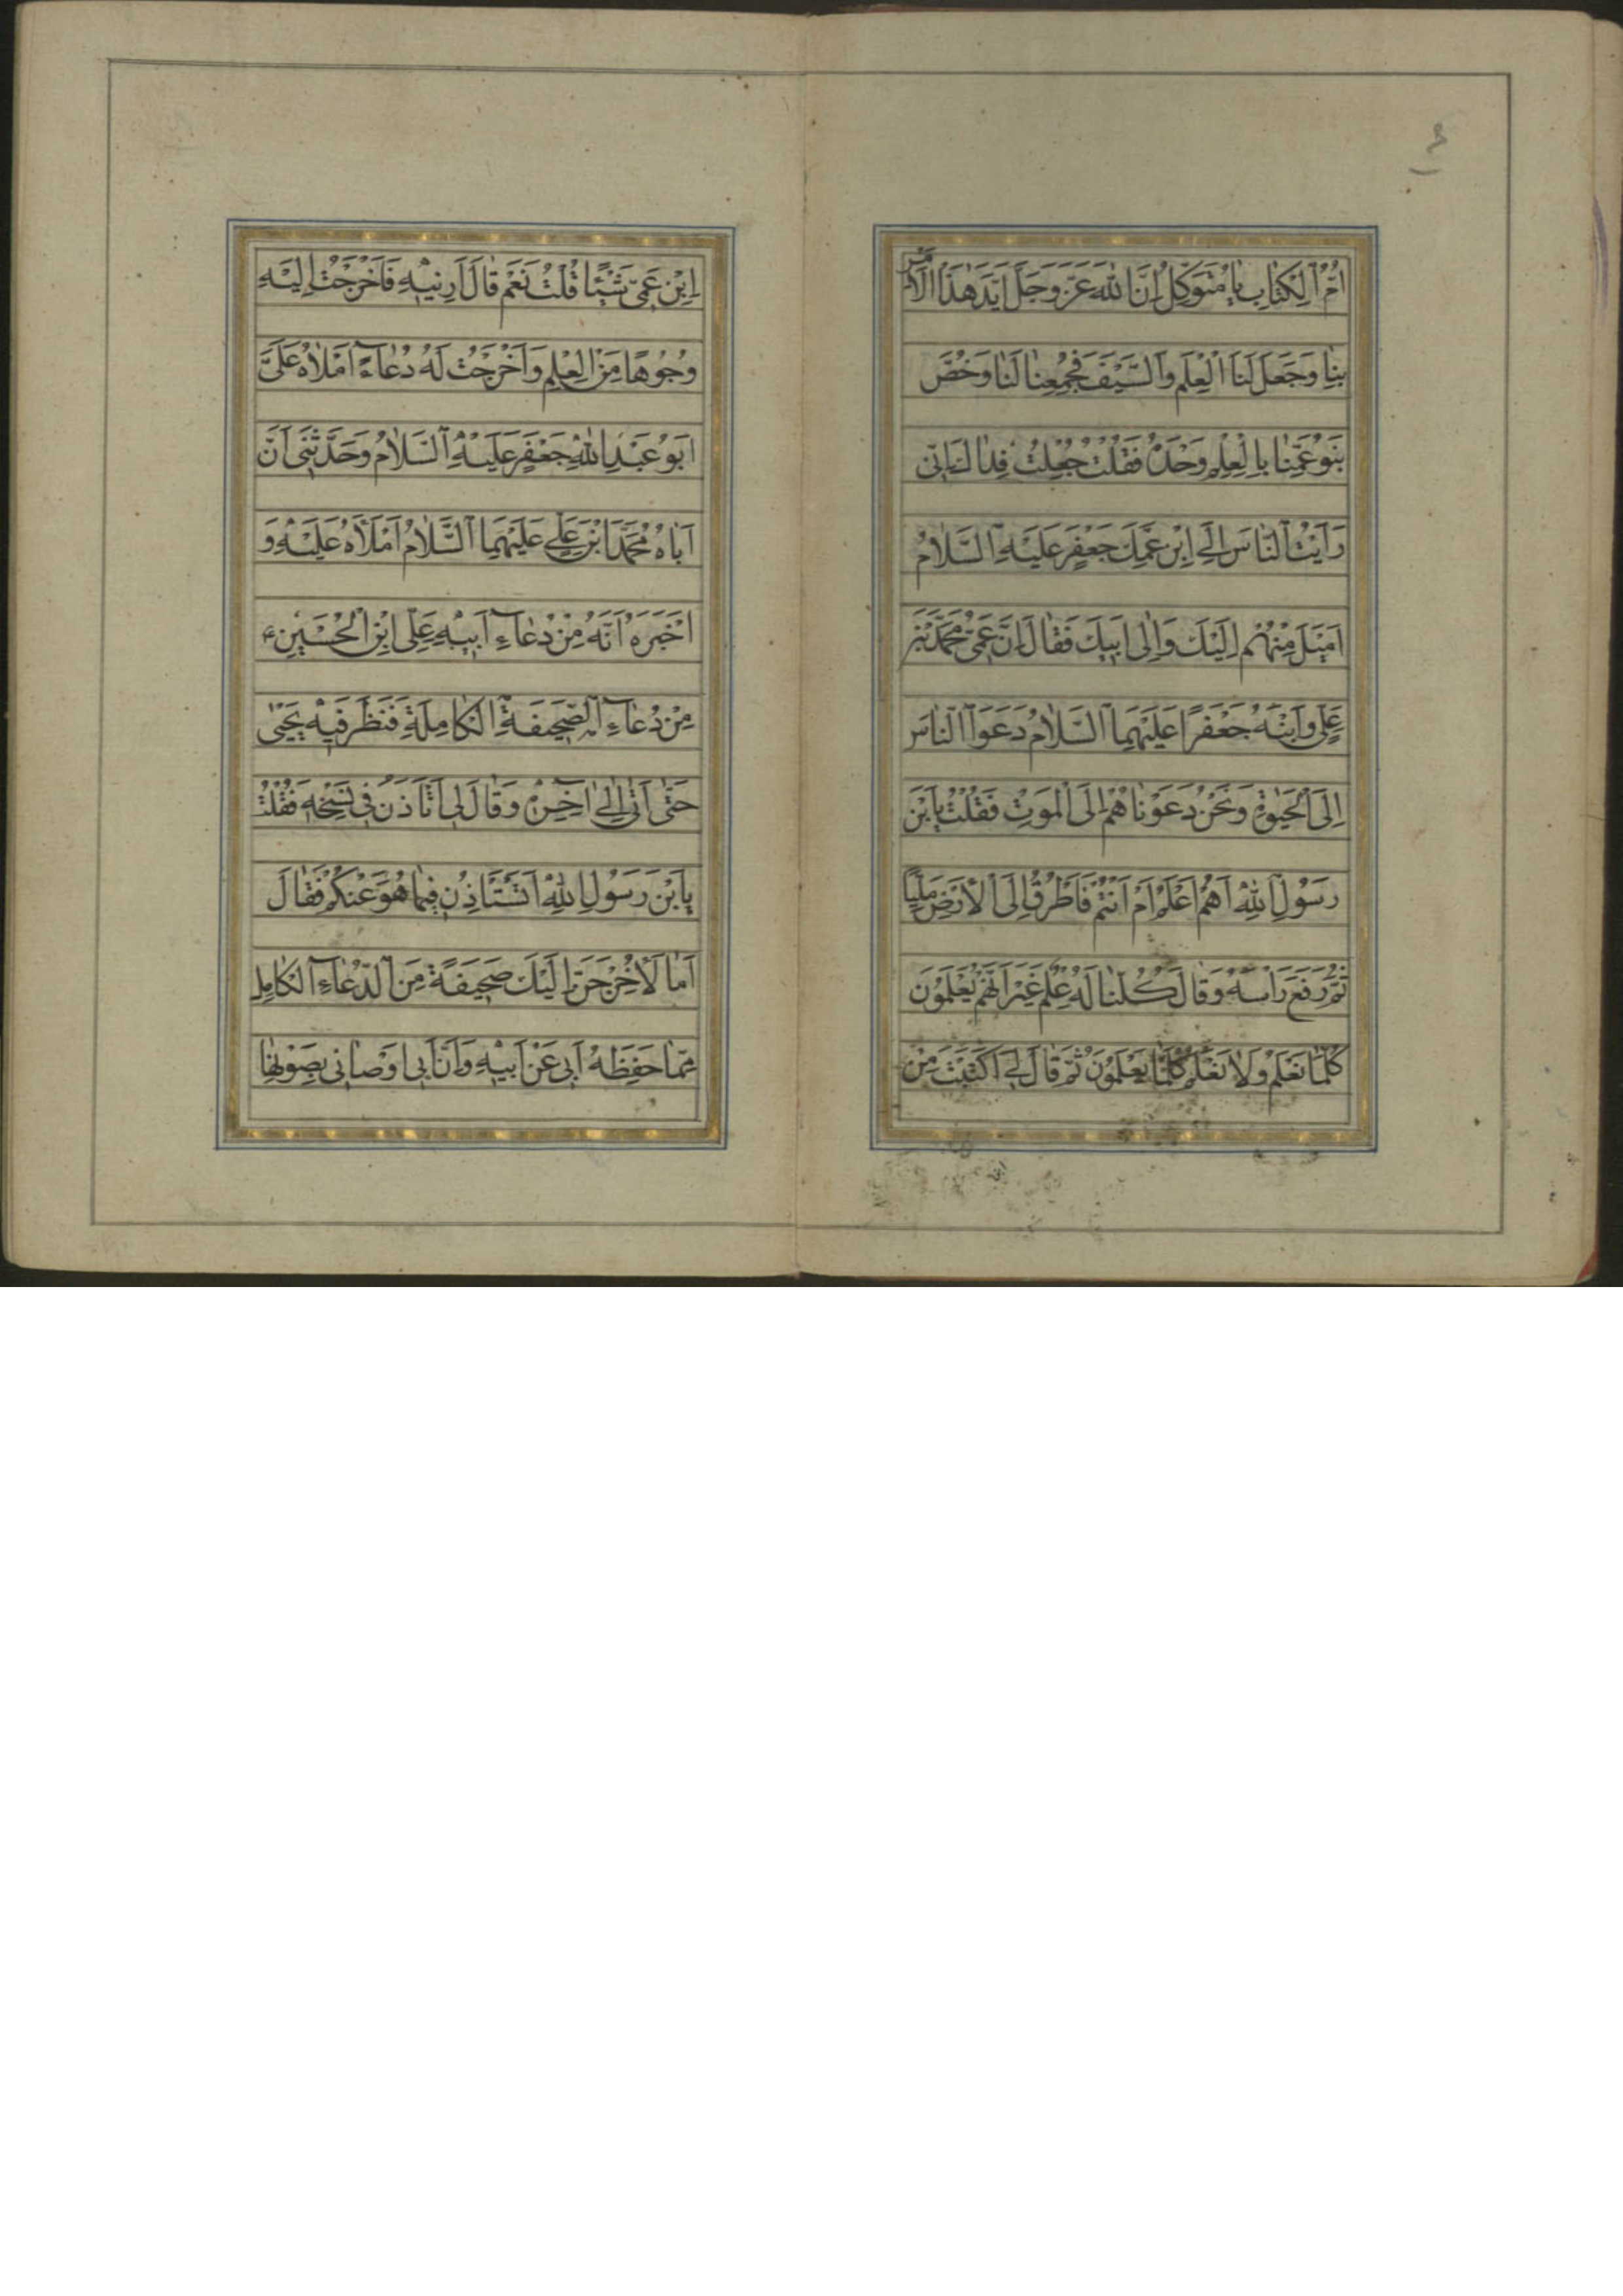 اُمُّ الْكِتَابِ يَا مُتَوَكِّلُ اِنَّ اللّٰهَ عَزَّ وَجَلَّ اَيَّدَ هٰذَا الْاَمْرَ
بِنَا وَجَعَلَ لَنَا الْعِلْمَ وَالسَّيْفَ فَجُمِعَا لَنَا وَخُصَّ
بَنُو عَمِّنَا بِالْعِلْمِ وَحْدَهُ فَقُلْتُ جُعِلْتُ فِدَاكَ اِنّى
رَاَيْتُ النَّاسَ اِلَى ابْنِ عَمِّكَ جَعْفَرٍ عَلَيْهِ السَّلَامُ
اَمْيَلَ مِنْهُمْ اِلَيْكَ وَاِلى اَبِيكَ فَقَالَ اِنَّ عَمّى مُحَمَّدَ بْنَ
عَلِىٍّ وَابْنَهُ جَعْفَرًا عَلَيْهِمَا السَّلَامُ دَعَوَا النَّاسَ
اِلَى الْحَيٰوةِ وَنَحْنُ دَعَوْنَاهُمْ اِلَى الْمَوْتِ فَقُلْتُ يَابْنَ
رَسُولِ اللّٰهِ اَهُمْ اَعْلَمُ اَمْ اَنْتُمْ فَاَطْرَقَ اِلَى الْاَرْضِ مَلِيًّا
ثُمَّ رَفَعَ رَاْسَهُ وَقَالَ كُلُّنَا لَهُ عِلْمٌ غَيْرَ اَنَّهُمْ يَعْلَمُونَ
كُلَّمَا نَعْلَمُ وَلَا نَعْلَمُ كُلَّمَا يَعْلَمُونَ ثُمَّ قَالَ لى اَكَتَبْتَ مِنَ
اِبْنِ عَمّى شَيْئًا قُلْتُ نَعَمْ قَالَ اَرِنِيهِ فَاَخْرَجْتُ اِلَيْهِ
وُجُوهًا مِنَ الْعِلْمِ وَاَخْرَجْتُ لَهُ دُعَاءً اَمْلَاهُ عَلَىَّ
اَبُو عَبْدِ اللّٰهِ جَعْفَرٍ عَلَيْهِ السَّلَامُ وَحَدَّثَنى اَنَّ
اَبَاهُ مُحَمَّدَ ابْنَ عَلِىٍّ عَلَيْهِمَا السَّلَامُ اَمْلَاهُ عَلَيْهِ وَ
اَخْبَرَهُ اَنَّهُ مِنْ دُعَاءِ اَبِيهِ عَلِى ابْنِ الْحُسَيْنِ ع
مِنْ دُعَاءِ الصَّحِيفَةِ الْكَامِلَةِ فَنَظَرَ فِيهِ يَحْيٰى
حَتّٰى اَتٰى اِلى اٰخِرِهِ وَقَالَ لى اَتَاْذَنُ فى نَسْخِهِ فَقُلْتُ
يَابْنَ رَسُولِ اللّٰهِ اَتَسْتَاْذِنُ فِيمَا هُوَ عَنْكُمْ فَقَالَ
اَمَا لَاُخْرِجَنَّ اِلَيْكَ صَحِيفَةً مِنَ الدُّعَاءِ الْكَامِلِ
مِمَّا حَفِظَهُ اَبى عَنْ اَبِيهِ وَاَنَّ اَبى اَوْصَانى بِصَوْنِهَا